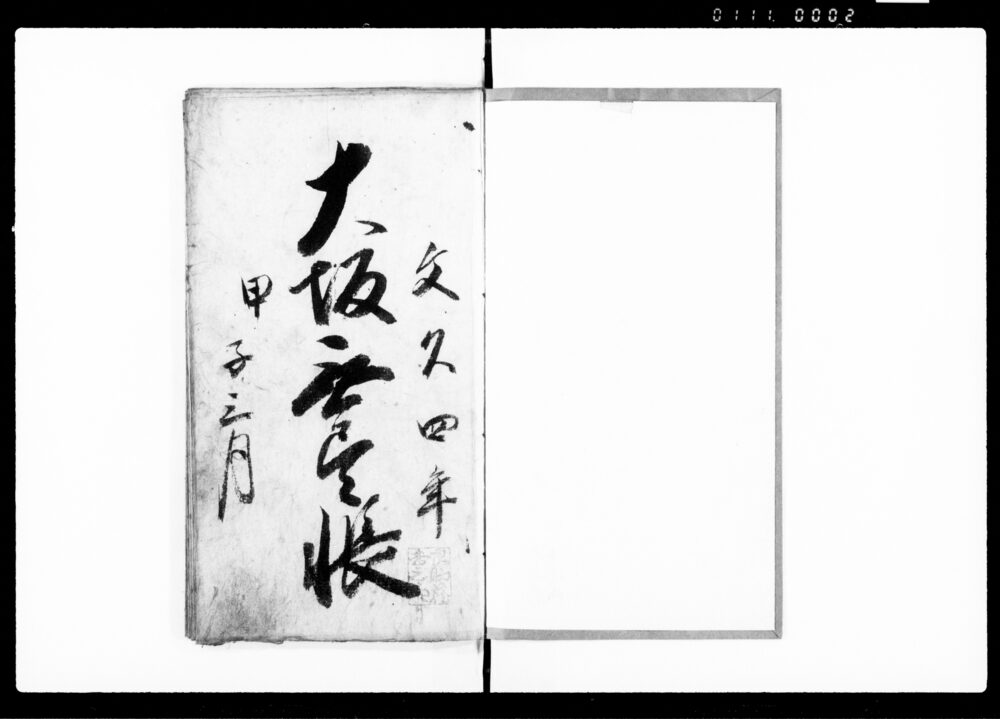 0111. 0002
文久四年
大坂帳
甲子三月